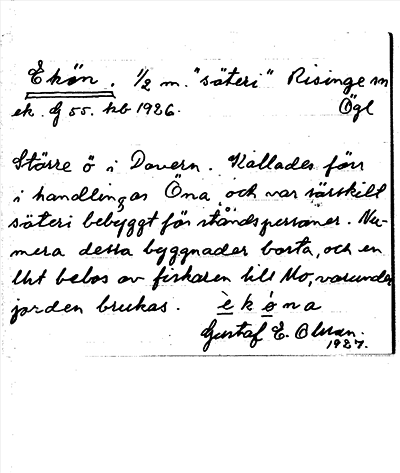 Ekön. 1/2 m. "säteri" Risinge sn
ek. G 55. kb 1926. Ögl
Större ö i Dovern. Kallades förr
i handlingar Öna, och var särskilt
säteri bebyggt för ståndspersoner. Nu-
mera dessa byggnader borta, och en
tht bebos av fiskaren till Mo, varunder
jorden brukas. è k ö n a
Gustaf E. Olsson.
1927.